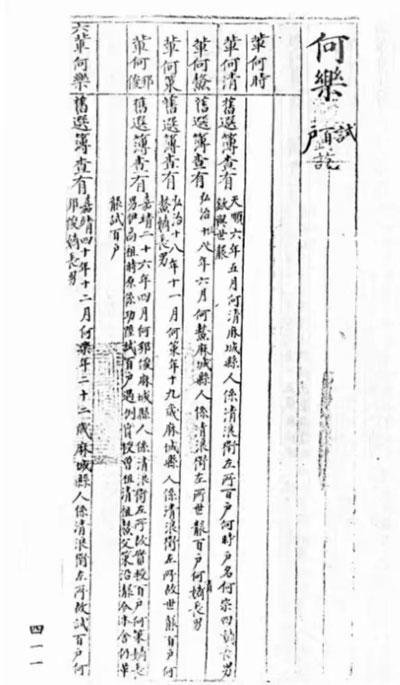 何樂
試百戶
一輩何時
二輩何清 舊選簿查有
天順六年五月何清麻城縣人係清浪衛左所百戶何時戶名何宗四嫡長男
欽與世襲
輩何鰲 舊選簿查有
弘治八年六月何鰲麻城縣人係清浪衛左所世襲百戶何清嫡長男
輩何策 舊選簿查有
弘治十八年十一月何策年十九歲麻城縣人係清浪衛左所故世襲百戶何
鰲嫡長男
輩何邦俊 舊選簿查有
嘉靖二十六年四月何邦俊麻城縣人係清浪衛左所故實授百戶何策嫡長
男伊高祖時原係功陞試百戶遇例實授曾祖清祖鰲父策沿襲今本舍仍革
襲試百戶
六輩何樂 舊選簿查有
嘉靖四十年十二月何樂年二十二歲麻城縣人係清浪衛左所故試百戶何
邦俊嫡長男
四一一